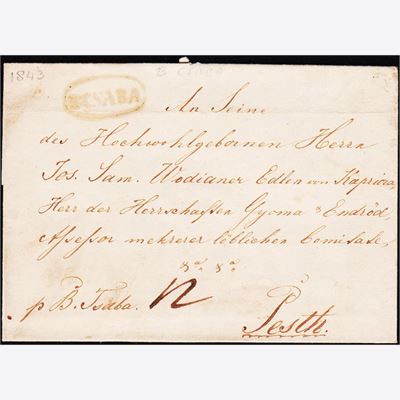 1843
B. CSABA
B. CSABA
An Seine
des Hochwohlgebornen Herrn
Jos. Sam. Wodianer Edlen von Kapriora,
Herr der Herrschaften Gyoma & Endröd,
Assessor mehrerer löblichen Comitate
p B. Tsaba.
12
Pesth.